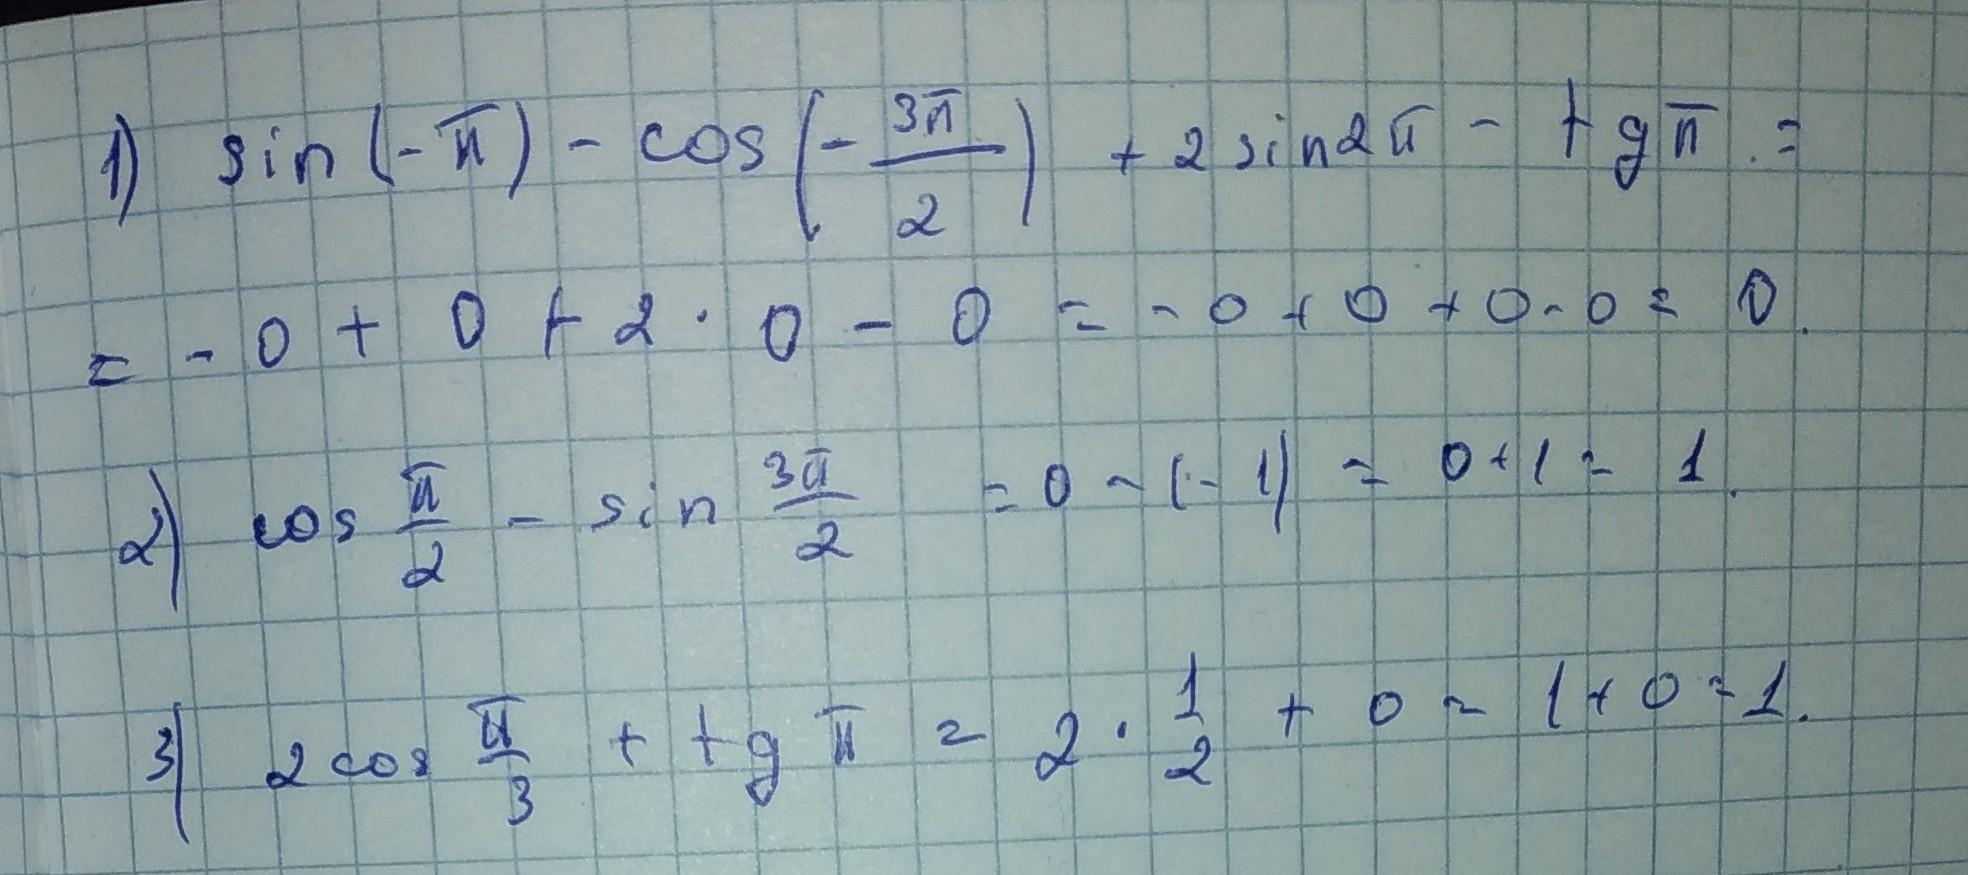 1) sin(-π) - cos(-3π/2) + 2sin2π - tgπ =
= -0 + 0 + 2·0 - 0 = -0+0+0-0 = 0.
2) cos π/2 - sin 3π/2 = 0-(-1) = 0+1 = 1.
3) 2cos π/3 + tg π = 2·1/2 + 0 = 1+0=1.